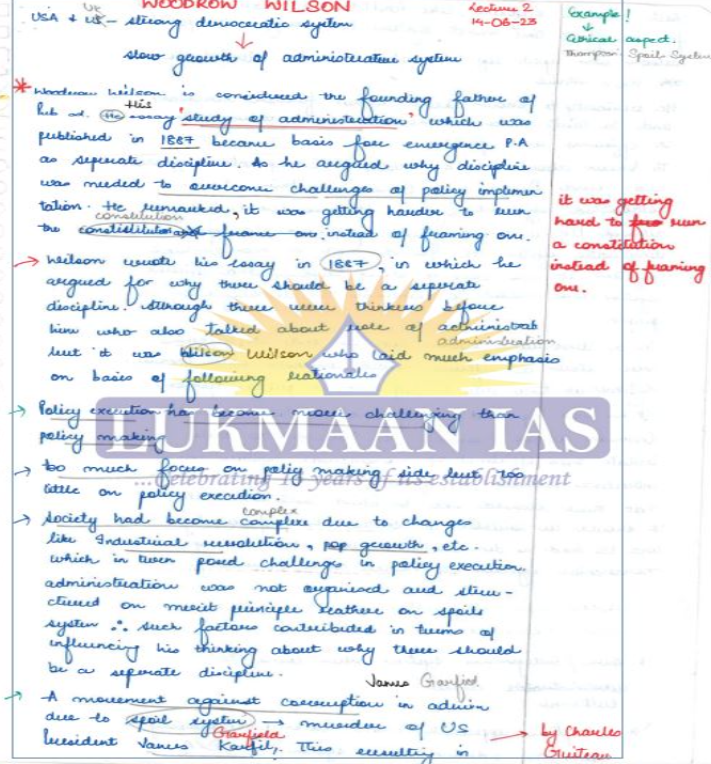 WOODROW WILSON
Lecture 2
14-06-23
USA & UK - strong democratic system
slow growth of administrative system
Example!
Ethical aspect.
Thompson: Spoils System
* Woodrow Wilson is considered the founding father of
Pub ad. His essay 'study of administration' which was
published in 1887 became basis for emergence P.A
as seperate discipline. As he argued why discipline
was needed to overcome challenges of policy implemen
tation. He remarked, it was getting harder to run
the constitution instead of framing one.
it was getting
hard to run
a constitution
instead of framing
one.
→ Wilson wrote his essay in 1887, in which he
argued for why there should be a seperate
discipline. Although there were thinkers before
him who also talked about role of administrat
administration
but it was Wilson who laid much emphasis
on basis of following rationales
→ Policy execution has become more challenging than
policy making
LUKMAAN IAS
...Celebrating years of its establishment
→ too much focus on policy making side but too
little on policy execution.
→ Society had become complex due to changes
complex
like Industrial revolution, pop growth, etc.
which in turn posed challenges in policy execution.
administration was not organised and stru-
ctured on merit principle reather on spoils
system ∴ such factors contributed in terms of
influencing his thinking about why there should
be a seperate discipline.
James Garfield
→ A movement against corruption in admin
due to spoil system → murder of US
President James Garfield. This resulting in
→ by Charles
Guiteau